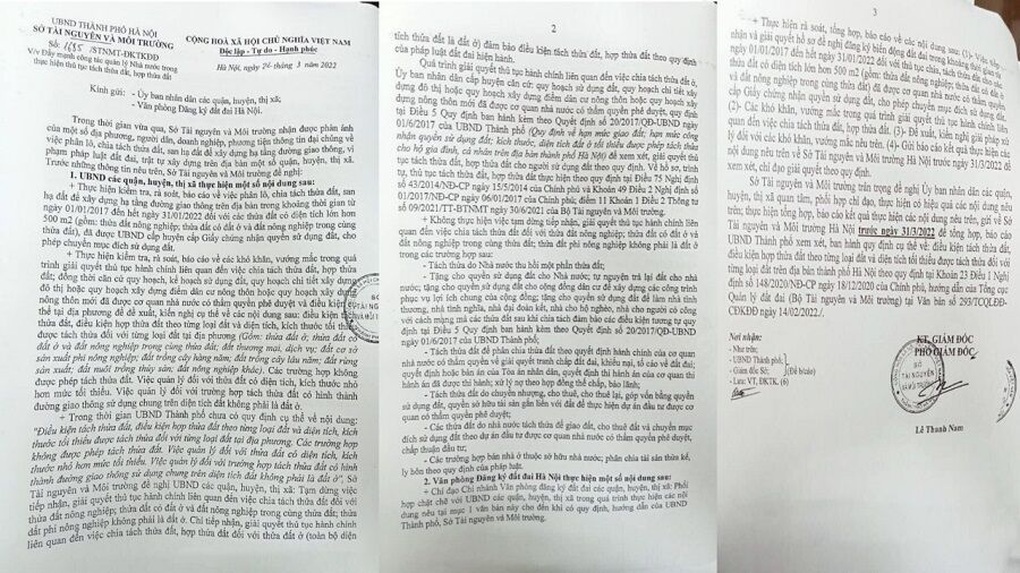 UBND THÀNH PHỐ HÀ NỘI
SỞ TÀI NGUYÊN VÀ MÔI TRƯỜNG
Số: 1685 /STNMT-ĐKTKĐĐ
V/v Đẩy mạnh công tác quản lý Nhà nước trong
thực hiện thủ tục tách thửa đất, hợp thửa đất
CỘNG HOÀ XÃ HỘI CHỦ NGHĨA VIỆT NAM
Độc lập - Tự do - Hạnh phúc
Hà Nội, ngày 24 tháng 3 năm 2022
Kính gửi: - Ủy ban nhân dân các quận, huyện, thị xã;
- Văn phòng Đăng ký đất đai Hà Nội.
Trong thời gian vừa qua, Sở Tài nguyên và Môi trường nhận được phản ánh
của một số địa phương, người dân, doanh nghiệp, phương tiện thông tin đại chúng về
việc phân lô, chia tách thửa đất, san hạ đất để xây dựng hạ tầng đường giao thông, vi
phạm pháp luật đất đai, trật tự xây dựng trên địa bàn một số quận, huyện, thị xã.
Trước những thông tin nêu trên, Sở Tài nguyên và Môi trường đề nghị:
1. UBND các quận, huyện, thị xã thực hiện một số nội dung sau:
+ Thực hiện kiểm tra, rà soát, báo cáo về việc phân lô, chia tách thửa đất, san
hạ đất để xây dựng hạ tầng đường giao thông trên địa bàn trong khoảng thời gian từ
ngày 01/01/2017 đến hết ngày 31/01/2022 đối với các thửa đất có diện tích lớn hơn
500 m2 (gồm: thửa đất nông nghiệp; thửa đất có đất ở và đất nông nghiệp trong cùng
thửa đất), đã được UBND cấp huyện cấp Giấy chứng nhận quyền sử dụng đất, cho
phép chuyển mục đích sử dụng đất.
+ Thực hiện kiểm tra, rà soát, báo cáo về các khó khăn, vướng mắc trong quá
trình giải quyết thủ tục hành chính liên quan đến việc chia tách thửa đất, hợp thửa
đất; đồng thời căn cứ quy hoạch, kế hoạch sử dụng đất, quy hoạch chi tiết xây dựng
đô thị hoặc quy hoạch xây dựng điểm dân cư nông thôn hoặc quy hoạch xây dựng
nông thôn mới đã được cơ quan nhà nước có thẩm quyền phê duyệt và điều kiện cụ
thể tại địa phương để đề xuất, kiến nghị cụ thể về các nội dung sau: điều kiện tách
thửa đất, điều kiện hợp thửa đất theo từng loại đất và diện tích, kích thước tối thiểu
được tách thửa đối với từng loại đất tại địa phương (Gồm: thửa đất ở; thửa đất có
đất ở và đất nông nghiệp trong cùng thửa đất; đất thương mại, dịch vụ; đất cơ sở
sản xuất phi nông nghiệp; đất trồng cây hàng năm; đất trồng cây lâu năm; đất rừng
sản xuất; đất nuôi trồng thủy sản; đất nông nghiệp khác). Các trường hợp không
được phép tách thửa đất. Việc quản lý đối với thửa đất có diện tích, kích thước nhỏ
hơn mức tối thiểu. Việc quản lý đối với trường hợp tách thửa đất có hình thành
đường giao thông sử dụng chung trên diện tích đất không phải là đất ở.
+ Trong thời gian UBND Thành phố chưa có quy định cụ thể về nội dung:
"Điều kiện tách thửa đất, điều kiện hợp thửa đất theo từng loại đất và diện tích, kích
thước tối thiểu được tách thửa đối với từng loại đất tại địa phương. Các trường hợp
không được phép tách thửa đất. Việc quản lý đối với thửa đất có diện tích, kích
thước nhỏ hơn mức tối thiểu. Việc quản lý đối với trường hợp tách thửa đất có hình
thành đường giao thông sử dụng chung trên diện tích đất không phải là đất ở", Sở
Tài nguyên và Môi trường đề nghị UBND các quận, huyện, thị xã: Tạm dừng việc
tiếp nhận, giải quyết thủ tục hành chính liên quan đến việc chia tách thửa đất đối với
thửa đất nông nghiệp; thửa đất có đất ở và đất nông nghiệp trong cùng thửa đất; thửa
đất phi nông nghiệp không phải là đất ở. Chỉ tiếp nhận, giải quyết thủ tục hành chính
liên quan đến việc chia tách thửa đất, hợp thửa đất đối với thửa đất ở (toàn bộ diện
2
tích thửa đất là đất ở) đảm bảo điều kiện tách thửa đất, hợp thửa đất theo quy định
của pháp luật đất đai hiện hành.
Quá trình giải quyết thủ tục hành chính liên quan đến việc chia tách thửa đất ở,
Ủy ban nhân dân cấp huyện căn cứ: quy hoạch sử dụng đất, quy hoạch chi tiết xây
dựng đô thị hoặc quy hoạch xây dựng điểm dân cư nông thôn hoặc quy hoạch xây
dựng nông thôn mới đã được cơ quan nhà nước có thẩm quyền phê duyệt, quy định
tại Điều 5 Quy định ban hành kèm theo Quyết định số 20/2017/QĐ-UBND ngày
01/6/2017 của UBND Thành phố (Quy định về hạn mức giao đất; hạn mức công
nhận quyền sử dụng đất; kích thước, diện tích đất ở tối thiểu được phép tách thửa
cho hộ gia đình, cá nhân trên địa bàn thành phố Hà Nội) để xem xét, giải quyết thủ
tục tách thửa đất, hợp thửa đất cho người sử dụng đất theo quy định. Về hồ sơ, trình
tự, thủ tục tách thửa đất, hợp thửa đất thực hiện theo quy định tại Điều 75 Nghị định
số 43/2014/NĐ-CP ngày 15/5/2014 của Chính phủ và Khoản 49 Điều 2 Nghị định số
01/2017/NĐ-CP ngày 06/01/2017 của Chính phủ; điểm 11 Khoản 1 Điều 2 Thông tư
số 09/2021/TT-BTNMT ngày 30/6/2021 của Bộ Tài nguyên và Môi trường.
+ Không thực hiện việc tạm dừng tiếp nhận, giải quyết thủ tục hành chính liên
quan đến việc chia tách thửa đất đối với thửa đất nông nghiệp; thửa đất có đất ở và
đất nông nghiệp trong cùng thửa đất; thửa đất phi nông nghiệp không phải là đất ở
trong các trường hợp sau:
- Tách thửa do Nhà nước thu hồi một phần thửa đất;
- Tặng cho quyền sử dụng đất cho Nhà nước; tự nguyện trả lại đất cho nhà
nước; tặng cho quyền sử dụng đất cho cộng đồng dân cư để xây dựng các công trình
phục vụ lợi ích chung của cộng đồng; tặng cho quyền sử dụng đất để làm nhà tình
thương, nhà tình nghĩa, nhà đại đoàn kết, nhà cho hộ nghèo, nhà cho người có công
với cách mạng mà các thửa đất sau khi chia tách đảm bảo các điều kiện tương tự quy
định tại Điều 5 Quy định ban hành kèm theo Quyết định số 20/2017/QĐ-UBND
ngày 01/6/2017 của UBND Thành phố;
- Tách thửa đất để phân chia thửa đất theo quyết định hành chính của cơ quan
nhà nước có thẩm quyền về giải quyết tranh chấp đất đai, khiếu nại, tố cáo về đất đai;
quyết định hoặc bản án của Tòa án nhân dân, quyết định thi hành án của cơ quan thi
hành án đã được thi hành; xử lý nợ theo hợp đồng thế chấp, bảo lãnh;
- Tách thửa đất do chuyển nhượng, cho thuê, cho thuê lại, góp vốn bằng quyền
sử dụng đất, quyền sở hữu tài sản gắn liền với đất để thực hiện dự án đầu tư được cơ
quan có thẩm quyền phê duyệt;
- Các thửa đất do nhà nước tách thửa để giao đất, cho thuê đất và chuyển mục
đích sử dụng đất theo dự án đầu tư được cơ quan nhà nước có thẩm quyền phê duyệt,
chấp thuận đầu tư;
- Các trường hợp bán nhà ở thuộc sở hữu nhà nước; phân chia tài sản thừa kế,
ly hôn theo quy định của pháp luật.
2. Văn phòng Đăng ký đất đai Hà Nội thực hiện một số nội dung sau:
+ Chỉ đạo Chi nhánh Văn phòng đăng ký đất đai các quận, huyện, thị xã: Phối
hợp chặt chẽ với UBND các quận, huyện, thị xã trong quá trình thực hiện các nội
dung nêu tại mục 1 văn bản này cho đến khi có quy định, hướng dẫn của UBND
Thành phố, Sở Tài nguyên và Môi trường.
3
+ Thực hiện rà soát, tổng hợp, báo cáo về các nội dung sau: (1)- Việc tiếp
nhận và giải quyết hồ sơ đề nghị đăng ký biến động đất đai trong khoảng thời gian từ
ngày 01/01/2017 đến hết ngày 31/01/2022 đối với thủ tục chia, tách thửa đất đối với
thửa đất có diện tích lớn hơn 500 m2 (gồm: thửa đất nông nghiệp; thửa đất có đất ở
và đất nông nghiệp trong cùng thửa đất) đã được cơ quan nhà nước có thẩm quyền
cấp Giấy chứng nhận quyền sử dụng đất, cho phép chuyển mục đích sử dụng đất.
(2)- Các khó khăn, vướng mắc trong quá trình giải quyết thủ tục hành chính liên
quan đến việc chia tách thửa đất, hợp thửa đất. (3)- Đề xuất, kiến nghị giải pháp xử
lý đối với các khó khăn, vướng mắc nêu trên. (4)- Gửi báo cáo kết quả thực hiện các
nội dung nêu trên về Sở Tài nguyên và Môi trường Hà Nội trước ngày 31/3/2022 để
xem xét, chỉ đạo giải quyết theo quy định.
Sở Tài nguyên và Môi trường trân trọng đề nghị Ủy ban nhân dân các quận,
huyện, thị xã quan tâm, phối hợp chỉ đạo, thực hiện có hiệu quả các nội dung nêu
trên; thực hiện tổng hợp, báo cáo kết quả thực hiện các nội dung nêu trên, gửi về Sở
Tài nguyên và Môi trường Hà Nội trước ngày 31/3/2022 để tổng hợp, báo cáo
UBND Thành phố xem xét, ban hành quy định cụ thể về: điều kiện tách thửa đất,
điều kiện hợp thửa đất theo từng loại đất và diện tích tối thiểu được tách thửa đất với
từng loại đất trên địa bàn thành phố Hà Nội theo quy định tại Khoản 23 Điều 1 Nghị
định số 148/2020/NĐ-CP ngày 18/12/2020 của Chính phủ, hướng dẫn của Tổng cục
Quản lý đất đai (Bộ Tài nguyên và Môi trường) tại Văn bản số 293/TCQLĐĐ-
CĐKĐĐ ngày 14/02/2022./.
Nơi nhận:
- Như trên;
- UBND Thành phố;
- Giám đốc Sở;
(Để b/cáo)
- Lưu: VT, ĐKTK. (6)
KT. GIÁM ĐỐC
PHÓ GIÁM ĐỐC
SỞ
TÀI NGUYÊN
VÀ MÔI TRƯỜNG
Lê Thanh Nam